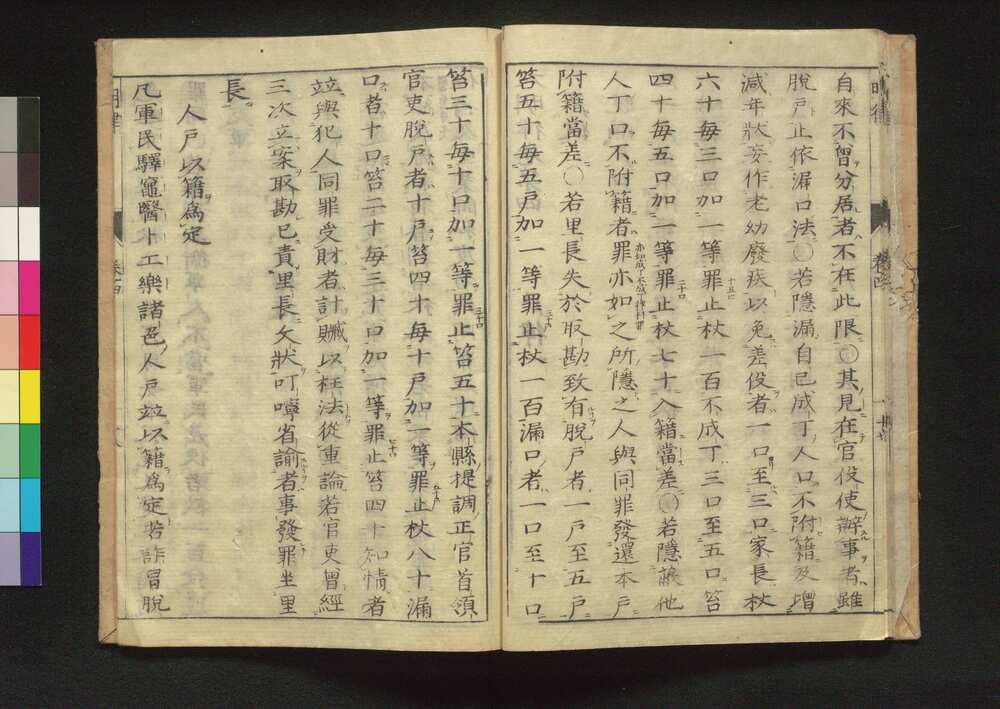 自來不曾分居者不在此限○其見在官役使辦事者雖
脫戶止依漏口法○若隱漏自己成丁人口不附籍及增
減年狀妄作老幼廢疾以免差役者一口至三口家長杖
六十每三口加一等罪止杖一百不成丁三口至五口笞
四十每五口加一等罪止杖七十入籍當差○若隱蔽他
人丁口不附籍者罪亦如之所隱之人與同罪發還本戶
附籍當差○若里長失於取勘致有脫戶者一戶至五戶
笞五十每五戶加一等罪止杖一百漏口者一口至十口
笞三十每十口加一等罪止笞五十本縣提調正官首領
官吏脫戶者十戶笞四十每十戶加一等罪止杖八十漏
口者十口笞二十每三十口加一等罪止笞四十知情者
竝與犯人同罪受財者計贓以枉法從重論若官吏曾經
三次立案取勘已責里長文狀叮嚀省諭者事發罪坐里
長
人戶以籍爲定
凡軍民驛竈醫卜工樂諸色人戶竝以籍爲定若詐冒脫